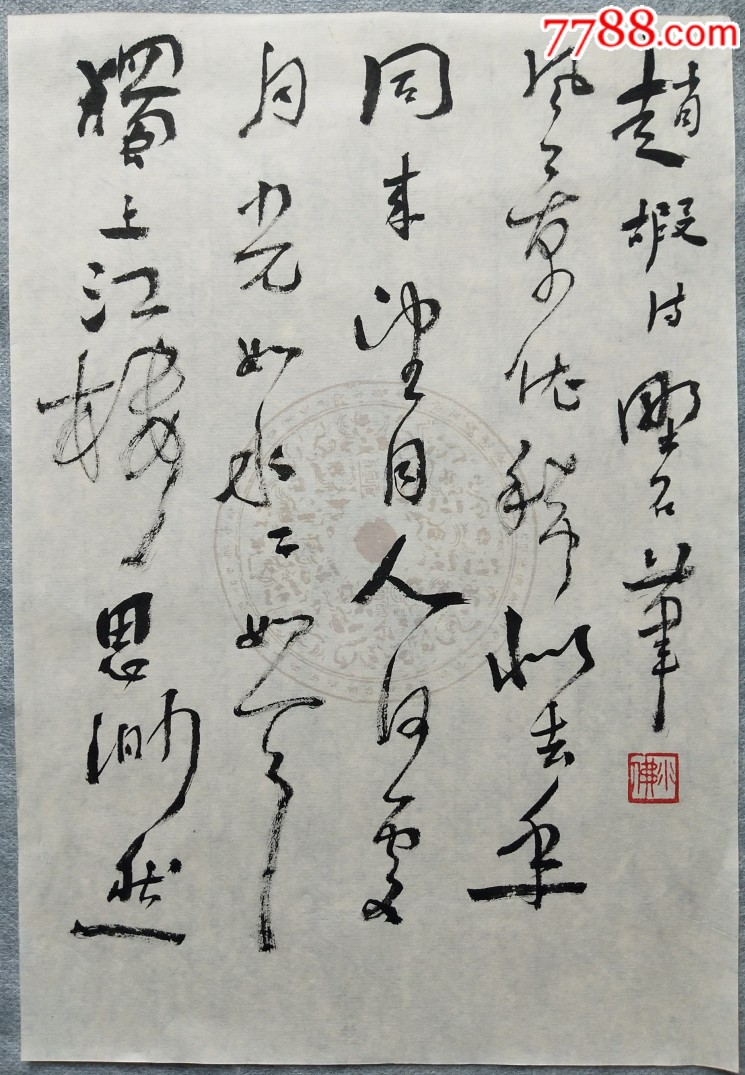 7788.com
獨上江樓思渺然
月光如水〻如天
同来望月人何處
風景依稀似去年
趙嘏诗 筆